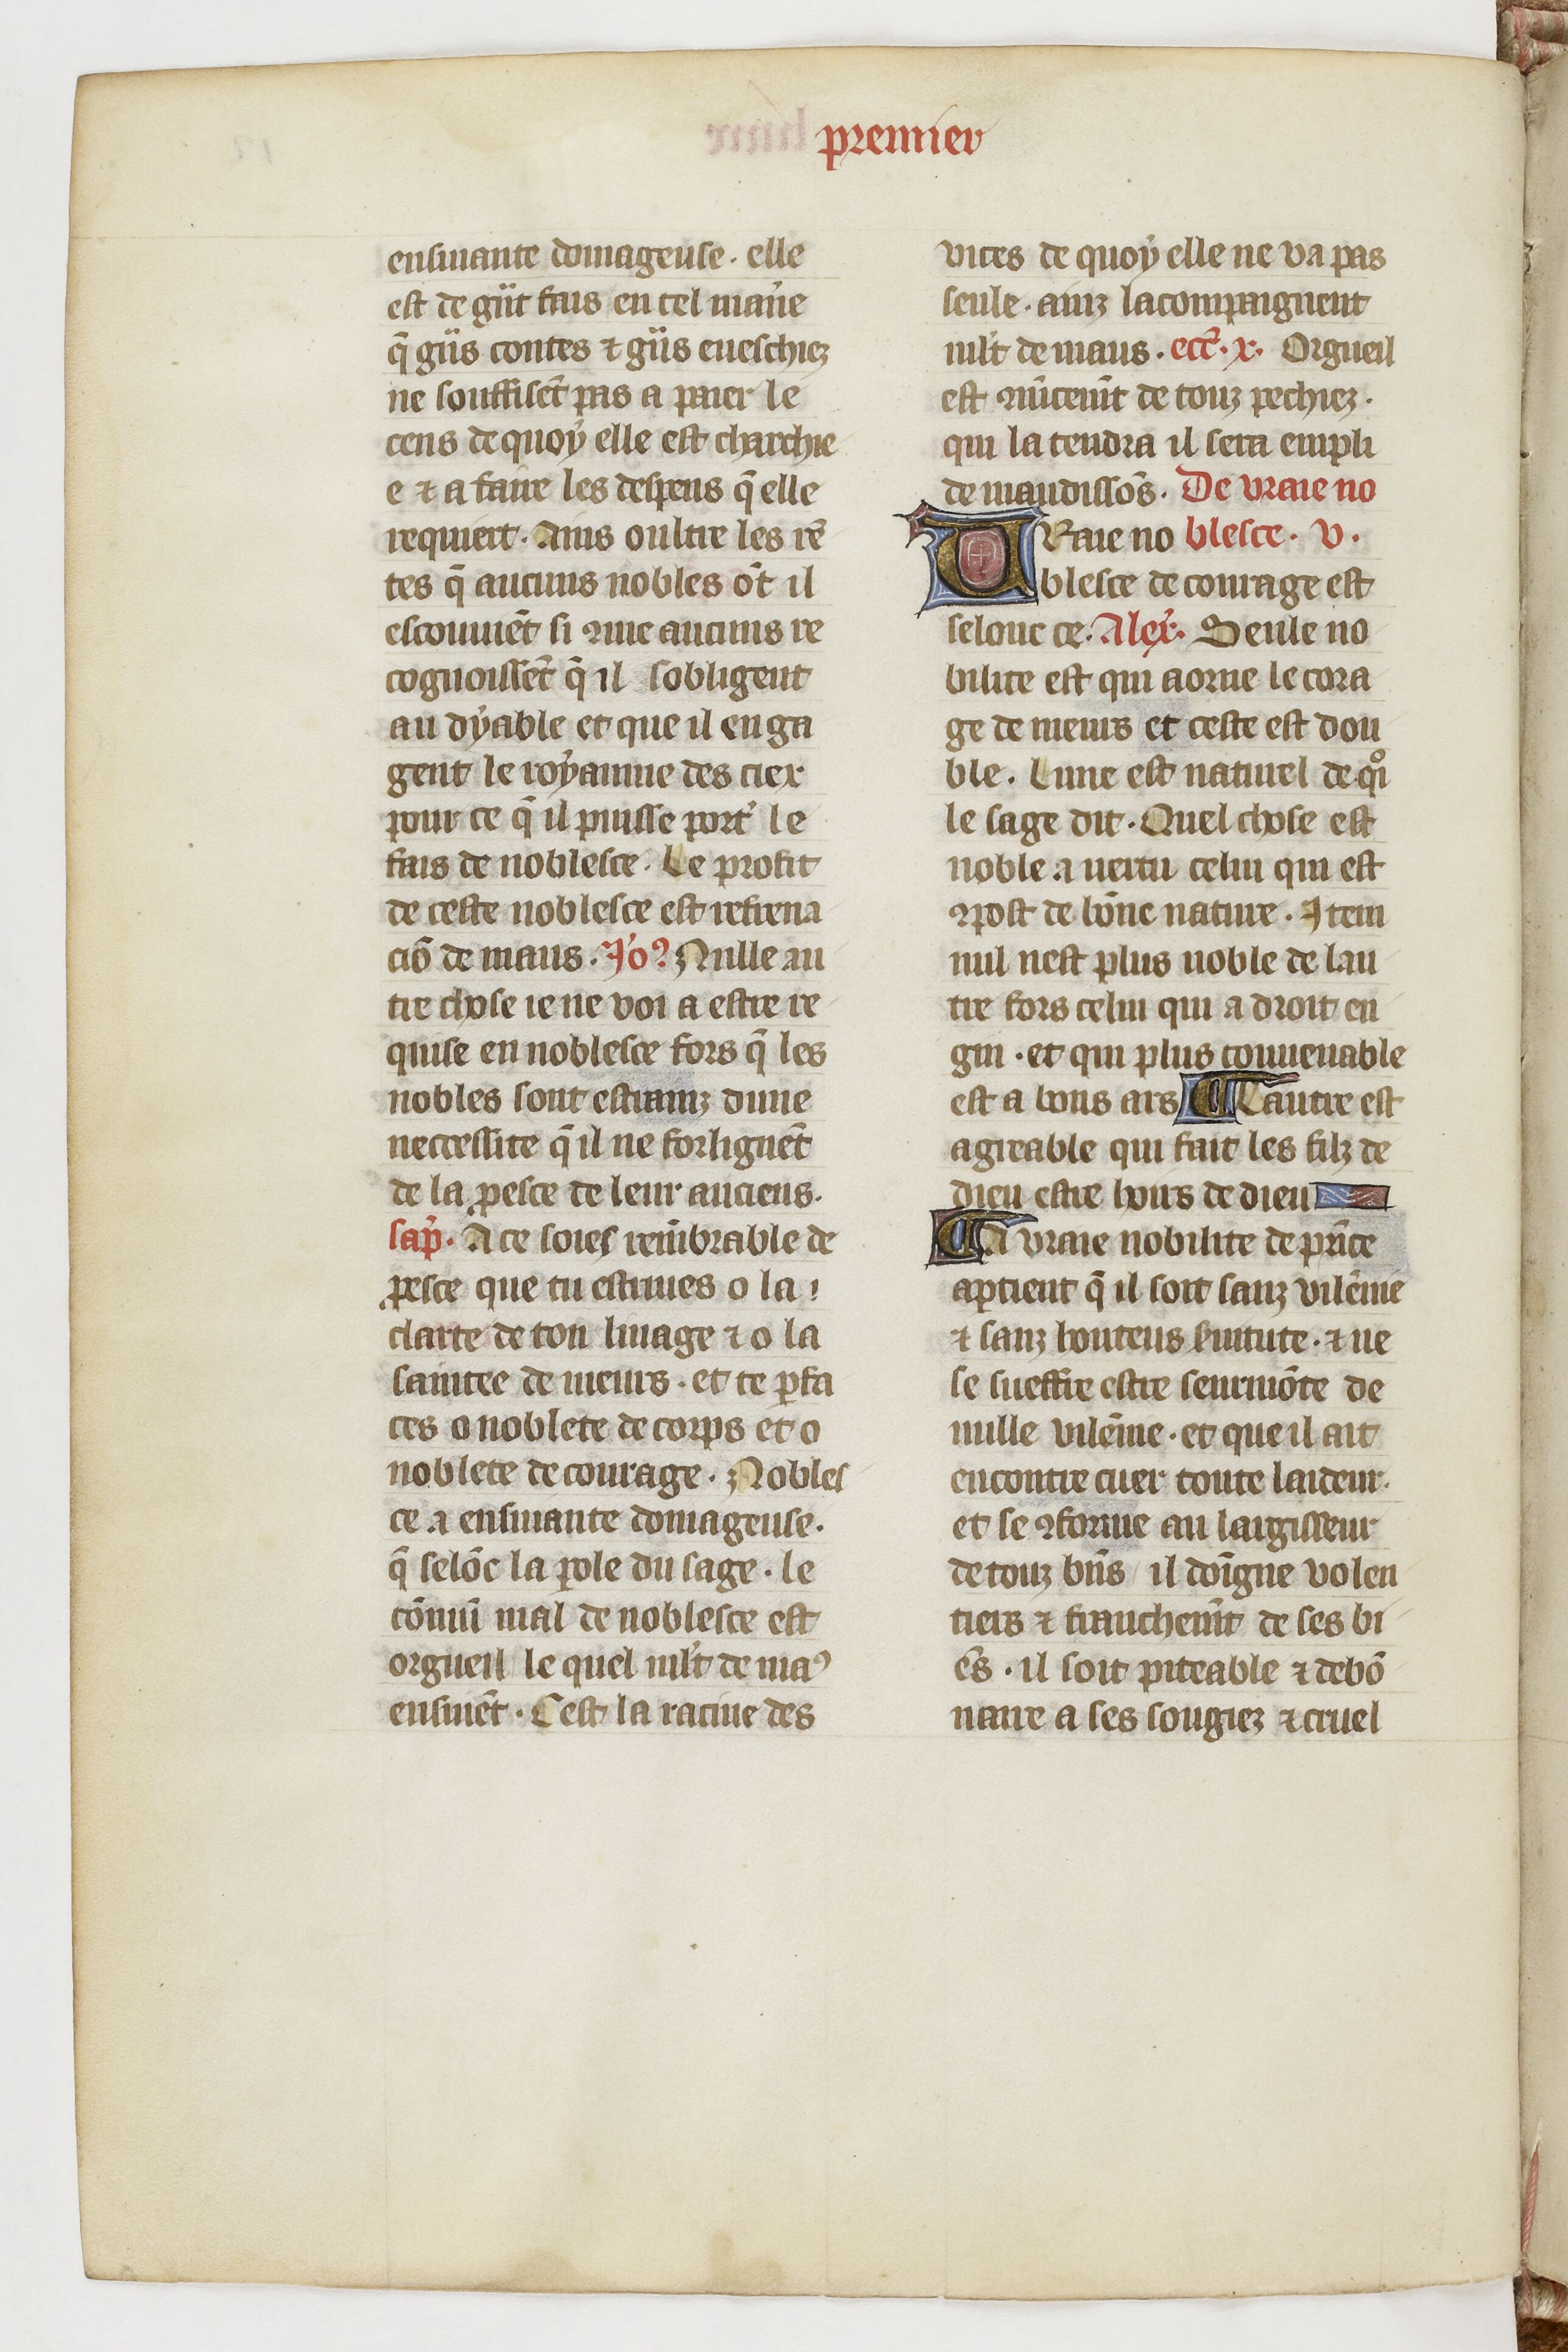 premier
ensiuante domageuse. elle
est de gᷓnt fais en tel manꝰe
q̃ gᷓns contes ⁊ gᷓns eueschiez
ne souffisẽt pas a paier le
cens de quoy elle est charchie
e ⁊ a faire les despens q̃ elle
requiert. Ains oultre les rẽ
tes q̃ aucuns nobles õt il
escouuiẽt si ꝯme aucuns re
cognoissẽt q̃ il sobligent
au dyable et que il enga
gent le royaume des ciex
pour ce q̃ il puisse port' le
fais de noblesce. Le profit
de ceste noblesce est refrena
ciõ de maus. Jo? Nulle au
tre chose ie ne voi a estre re
quise en noblesce fors q̃ les
nobles sont estrainz dune
neccessite q̃ il ne forlignẽt
de la ꝓesce de leur anciens.
sap̃. A ce soies remẽbrable de
ꝓesce que tu estriues o la
clarte de ton linage ⁊ o la
saintee de meurs. et te ꝑfa
ces o noblete de corps et o
noblete de courage. Nobles
ce a ensiuante domageuse.
q̃ selõc la ꝑole du sage. le
cõmũ mal de noblesce est
orgueil le quel ml't de maꝰ
ensiuẽt. Cest la racine des
vices de quoy elle ne va pas
seule. ainz lacompaignent
ml't de maus. ecc̃. x. Orgueil
est ꝯmẽcem̃t de touz pechiez.
qui la tendra il sera empli
de maudissõs. De vraie no
VRaie no blesce. v.
blesce de courage est
selonc ce. Alex̃. Seule no
bilite est qui aorne le cora
ge de meurs et ceste est dou
ble. Lune est naturel de qͦi
le sage dit. Quel chose est
noble a vertu celui qui est
ꝯpost de bõne nature. Item
nul nest plus noble de lau
tre fors celui qui a droit en
gin. et qui plus conuenable
est a bons ars Lautre est
agreable qui fait les filz de
dieu estre hoirs de dieu
A vraie nobilite de pⁱnce
aptient q̃ il soit sanz vilẽnie
⁊ sanz honteus ⁊ ne
se sueffre estre seurmõte de
nulle vilẽnie. et que il ait
encontre cuer toute laideur.
et se ꝯforme au largisseur
de touz bñs il doĩgne volen
tiers ⁊ franchem̃t de ses bi
ẽs. il soit piteable ⁊ debõ
naire a ses sougiez ⁊ cruel